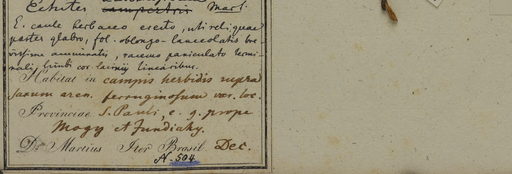 Echites campestris Mart.
E. caule herbaceo erecto, uti reliquae
partes glabro, fol. oblongo-lanceolatis bre-
vissime acuminatis, racemo paniculato termi-
nali, limbi cor. laciniis linearibus.
Habitat in campis herbidis supra
saxum aren. ferruginosum var. loc.
Provinciae S. Pauli, e. g. prope
Mogy et Jundiahy.
Dr. Martius Iter Brasil. Dec.
N. 504.